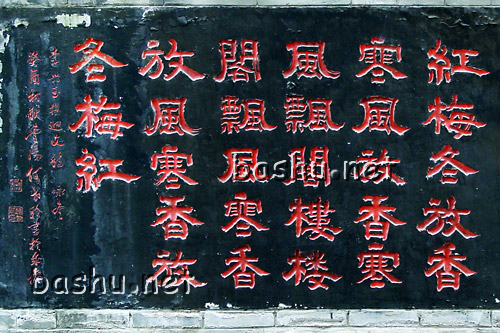 紅梅冬放香
寒風放香寒
風飄閣樓樓
閣飄風寒香
放風寒香放
冬梅紅
迴文詩 咏冬
bashu.net
bashu.net
bashu.net